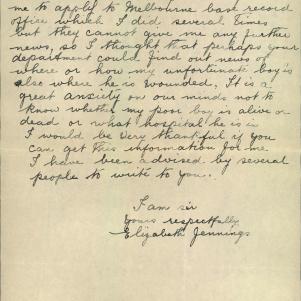 me to apply to Melbourne base record
office which I did several times
but they cannot give me any further
news, so I thought that perhaps your
department could find out news of
where or how my unfortunate boy is
also where he is wounded. It is a
great anxiety on our minds not to
know whether my poor boy is alive or
dead or what hospital he is in
I would be very thankful if you
can get this information for me
I have been advised by several
people to write to you.
I am sir
Yours respectfully
Elizabeth Jennings